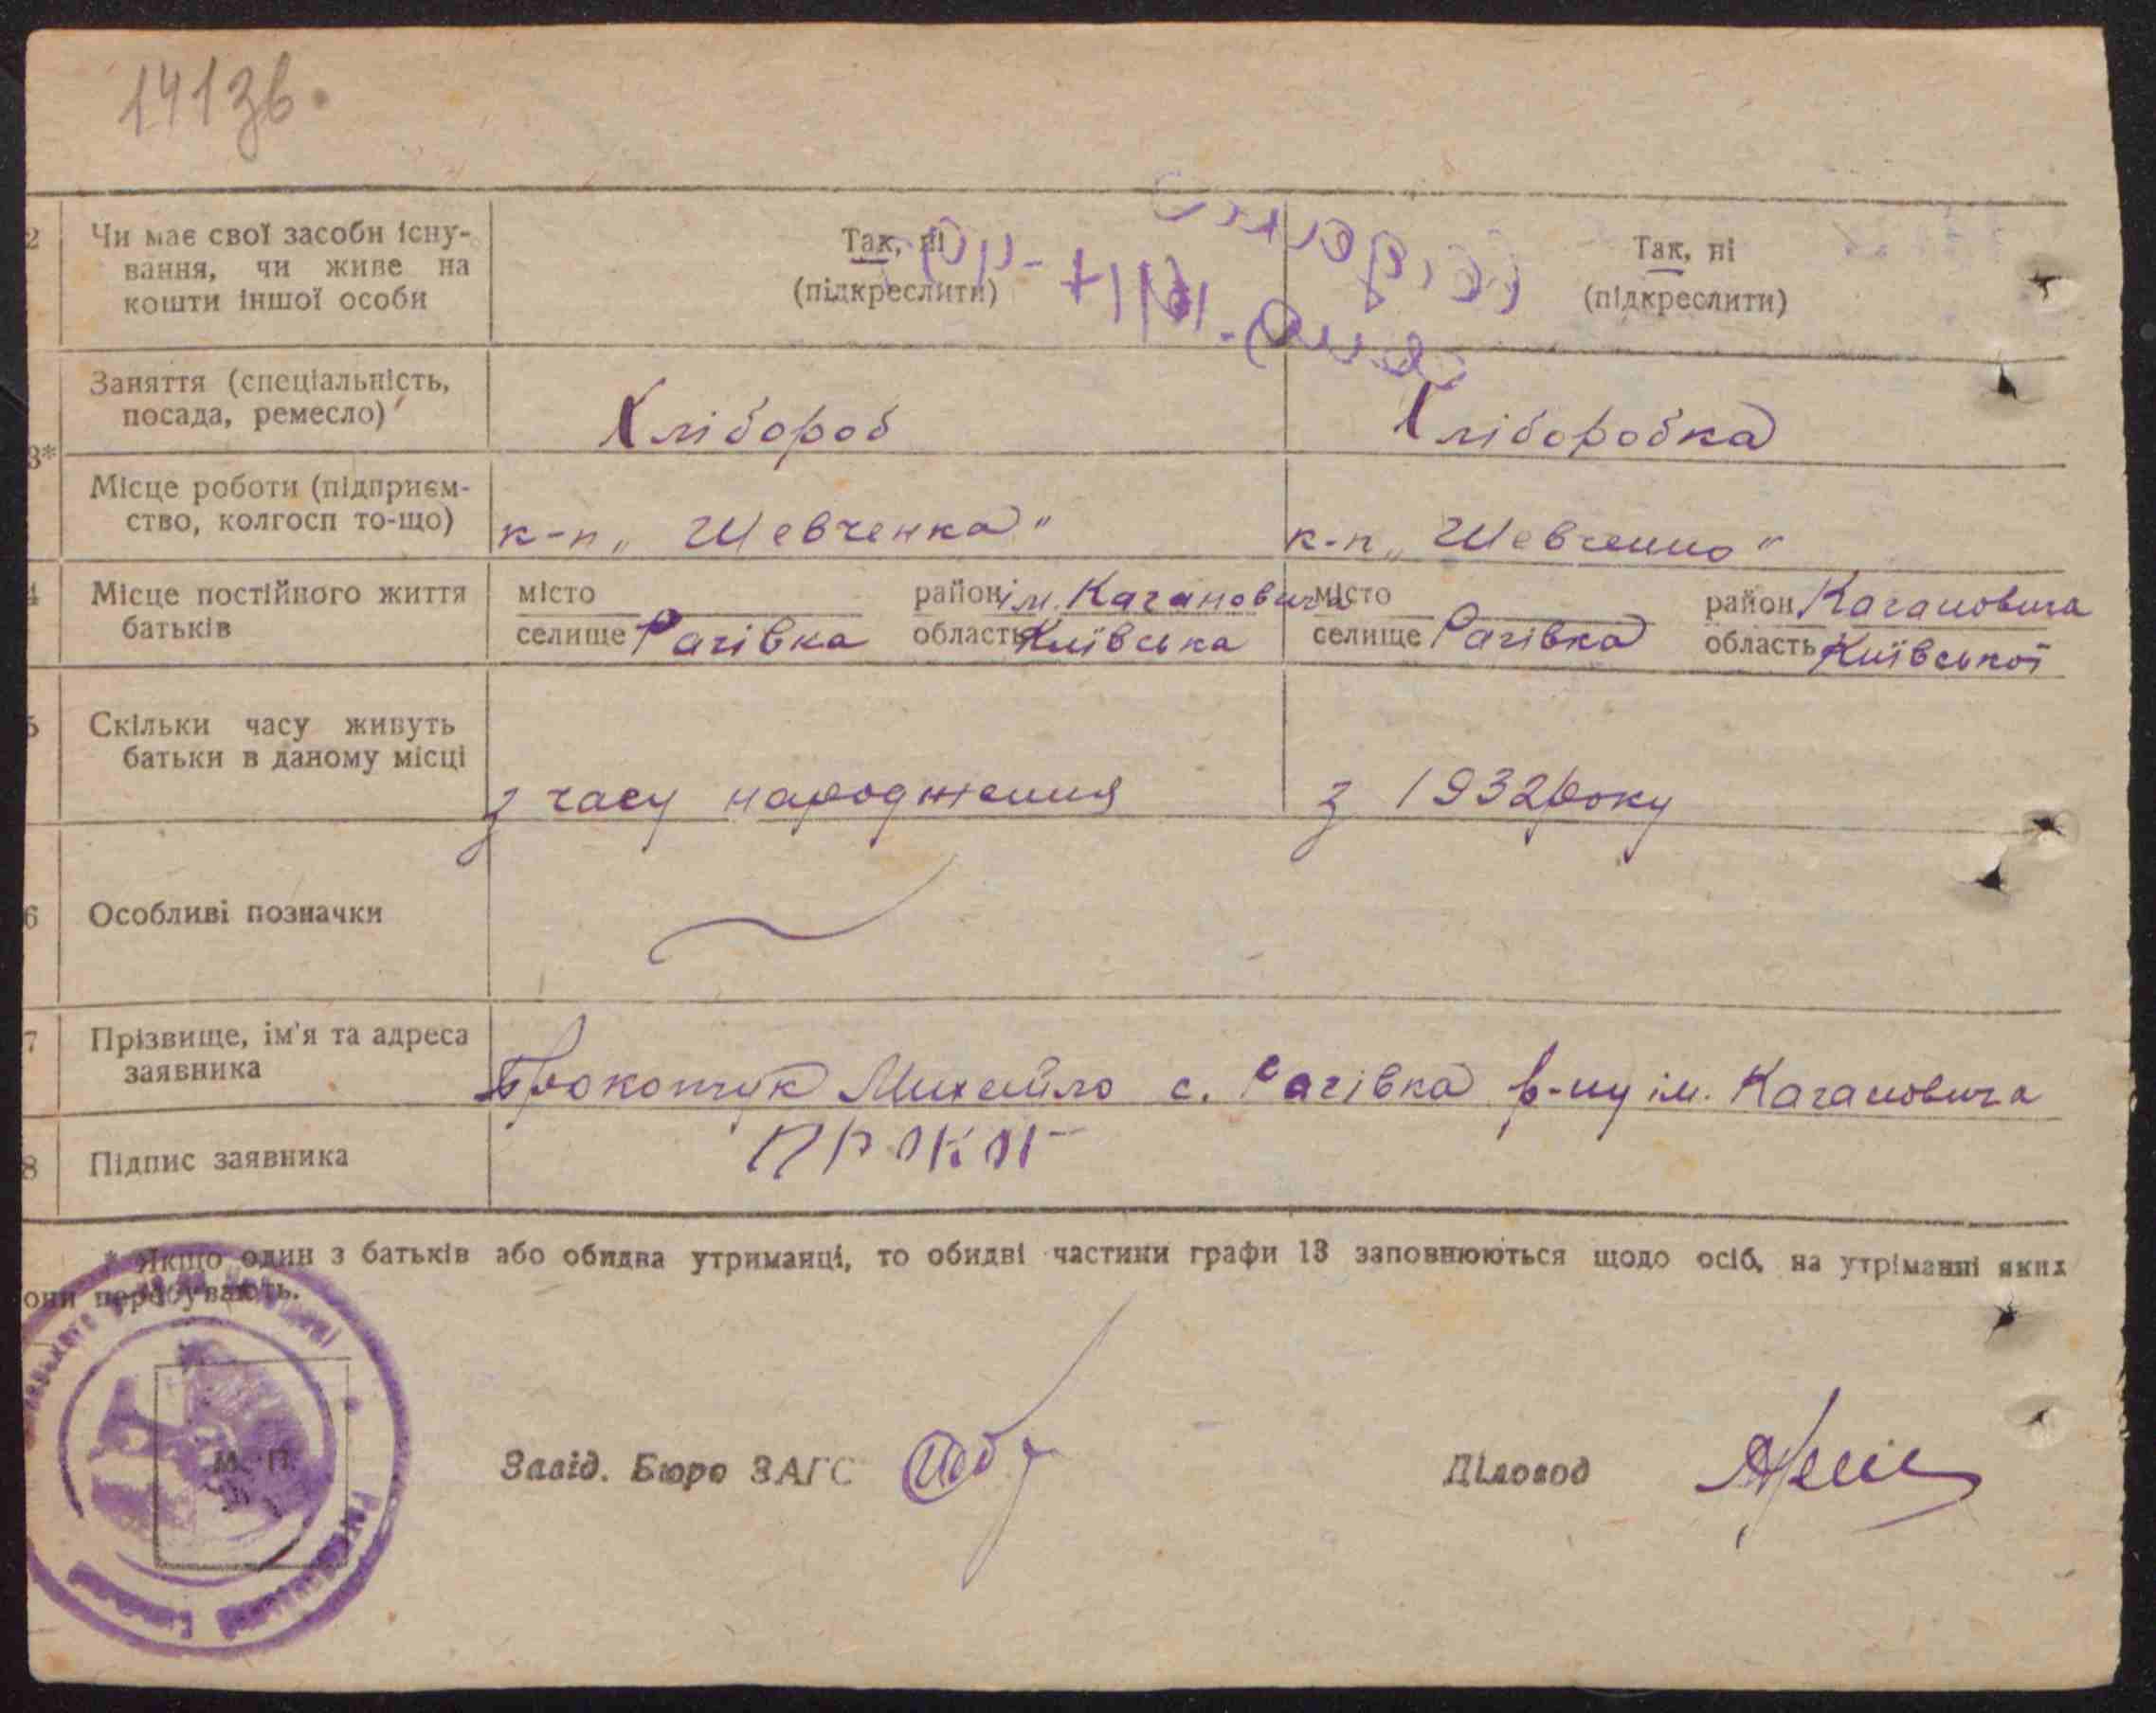 141зв.
2 Чи має свої засоби існу-
вання, чи живе на
кошти іншої особи
Так, ні
(підкреслити)
Так, ні
(підкреслити)
3* Заняття (спеціальність,
посада, ремесло)
Хлібороб
Хліборобка
Місце роботи (підприєм-
ство, колгосп то-що)
к-п „Шевченка"
к-п „Шевченко"
4 Місце постійного життя
батьків
місто район ім. Кагановича
селище Рагівка область Київська
місто район Кагановича
селище Рагівка область Київської
5 Скільки часу живуть
батьки в даному місці
з часу народження
з 1932 року
6 Особливі позначки
7 Прізвище, ім'я та адреса
заявника
Прокопчук Михейло с. Рагівка р-ну ім. Кагановича
8 Підпис заявника
ПРОКОП
* Якщо один з батьків або обидва утриманці, то обидві частини графи 13 заповнюються щодо осіб, на утріманні яких
они перебувають.
М. П.
Завід. Бюро ЗАГС
Діловод